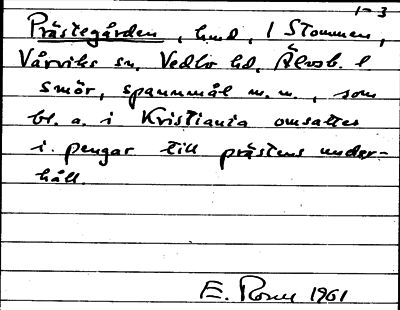 1-3
Prästegården, hmd, 1 Stommen,
Vårviks sn, Vedbo hd, Älvsb. l
smör, spannmål m.m., som
bl. a. i Kristiania omsattes
i pengar till prästens under-
håll.
E. 1961